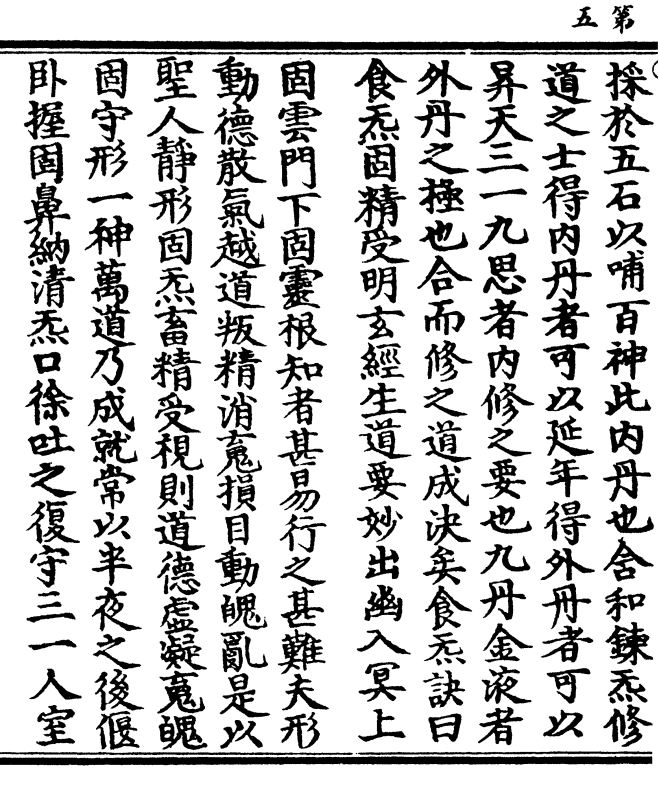 第五
採於五石以哺百神此内丹也含和鍊炁修
道之士得内丹者可以延年得外丹者可以
昇天三一九思者内修之要也九丹金液者
外丹之極也合而修之道成決矣食炁訣曰
食炁固精受明玄經生道要妙出幽入冥上
固雲門下固靈根知者甚易行之甚難夫形
動德散氣越道叛精消䰟損目動魄亂是以
聖人靜形固炁畜精受視則道德虛凝䰟魄
固守形一神萬道乃成就常以半夜之後偃
卧握固鼻納清炁口徐吐之復守三一人室